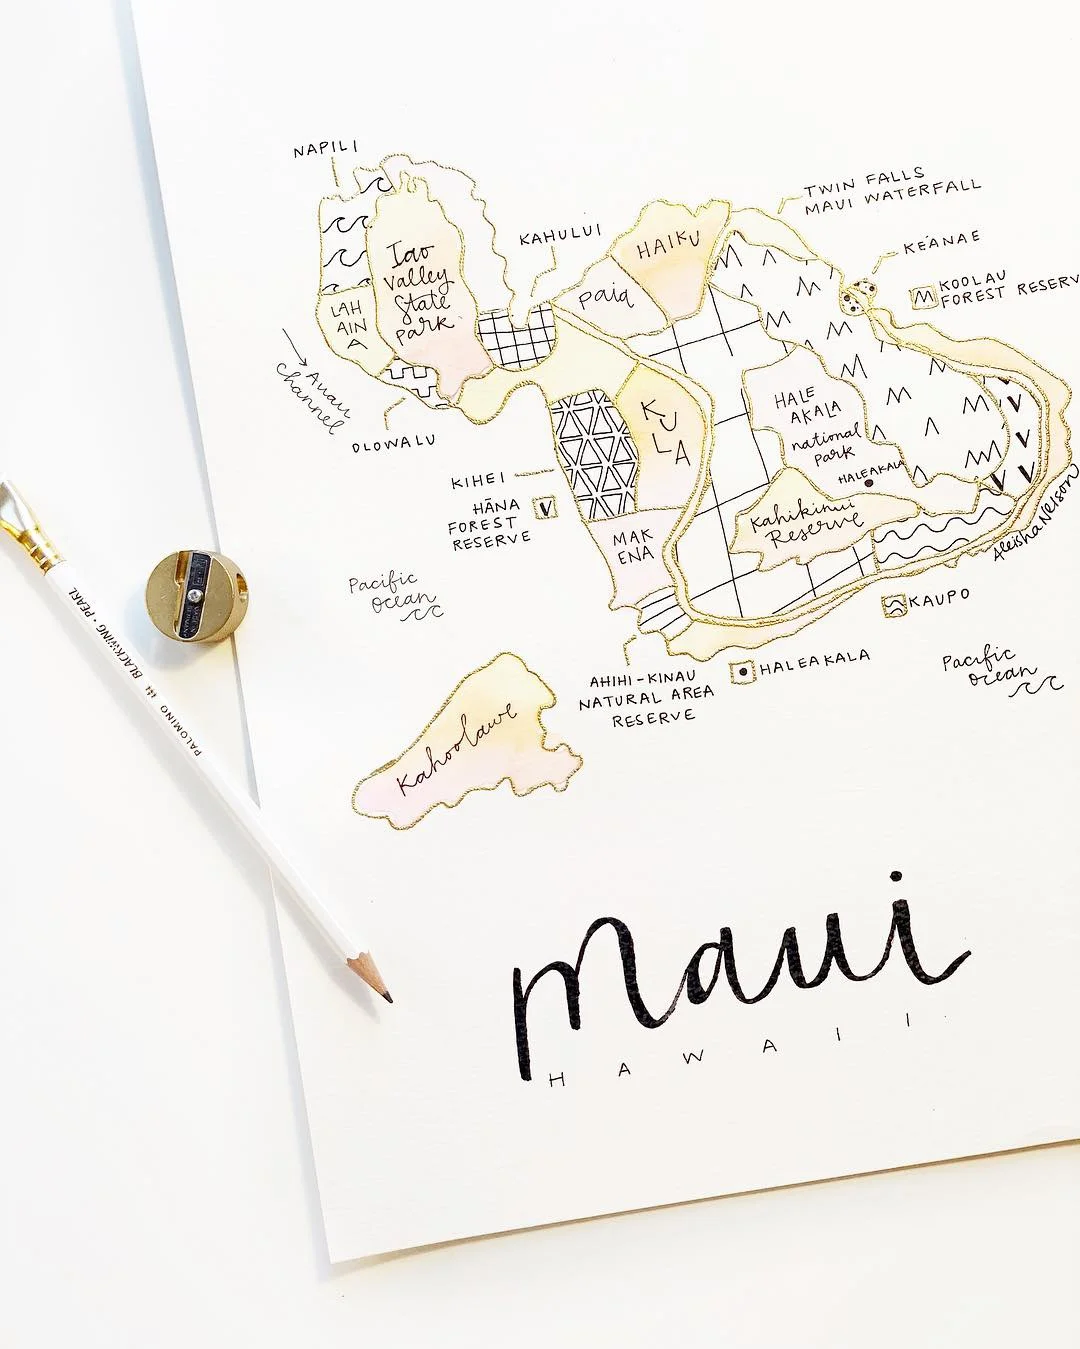 NAPILI
TWIN FALLS
MAUI WATERFALL
KAHULUI
HAIKU
KE'ANAE
Iao
Valley
State
park
paia
KOOLAU
FOREST RESERV
LAH
AIN
A
Auau
channel
OLOWALU
KU
LA
HALE
AKALA
national
park
HALEAKALA
KIHEI
HĀNA
FOREST
RESERVE
V
Kahikinui
Reserve
MAK
ENA
Aleisha Nelson
Pacific
Ocean
KAUPO
AHIHI-KINAU
NATURAL AREA
RESERVE
HALEAKALA
Pacific
Ocean
Kahoolawe
PALOMINO BLACKWING · PEARL
Maui
HAWAII